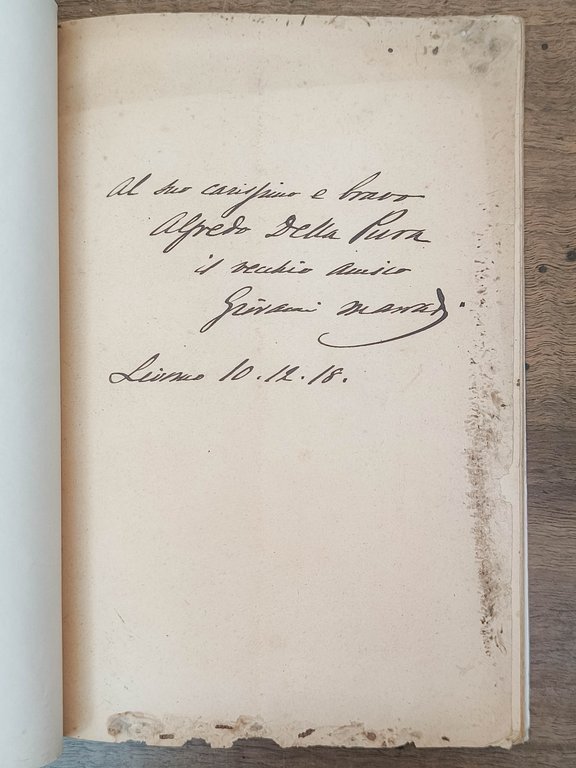 Al suo carissimo e bravo
Alfredo Della Pura
il vecchio amico
Giovanni Marradi.
Livorno 10.12.18.